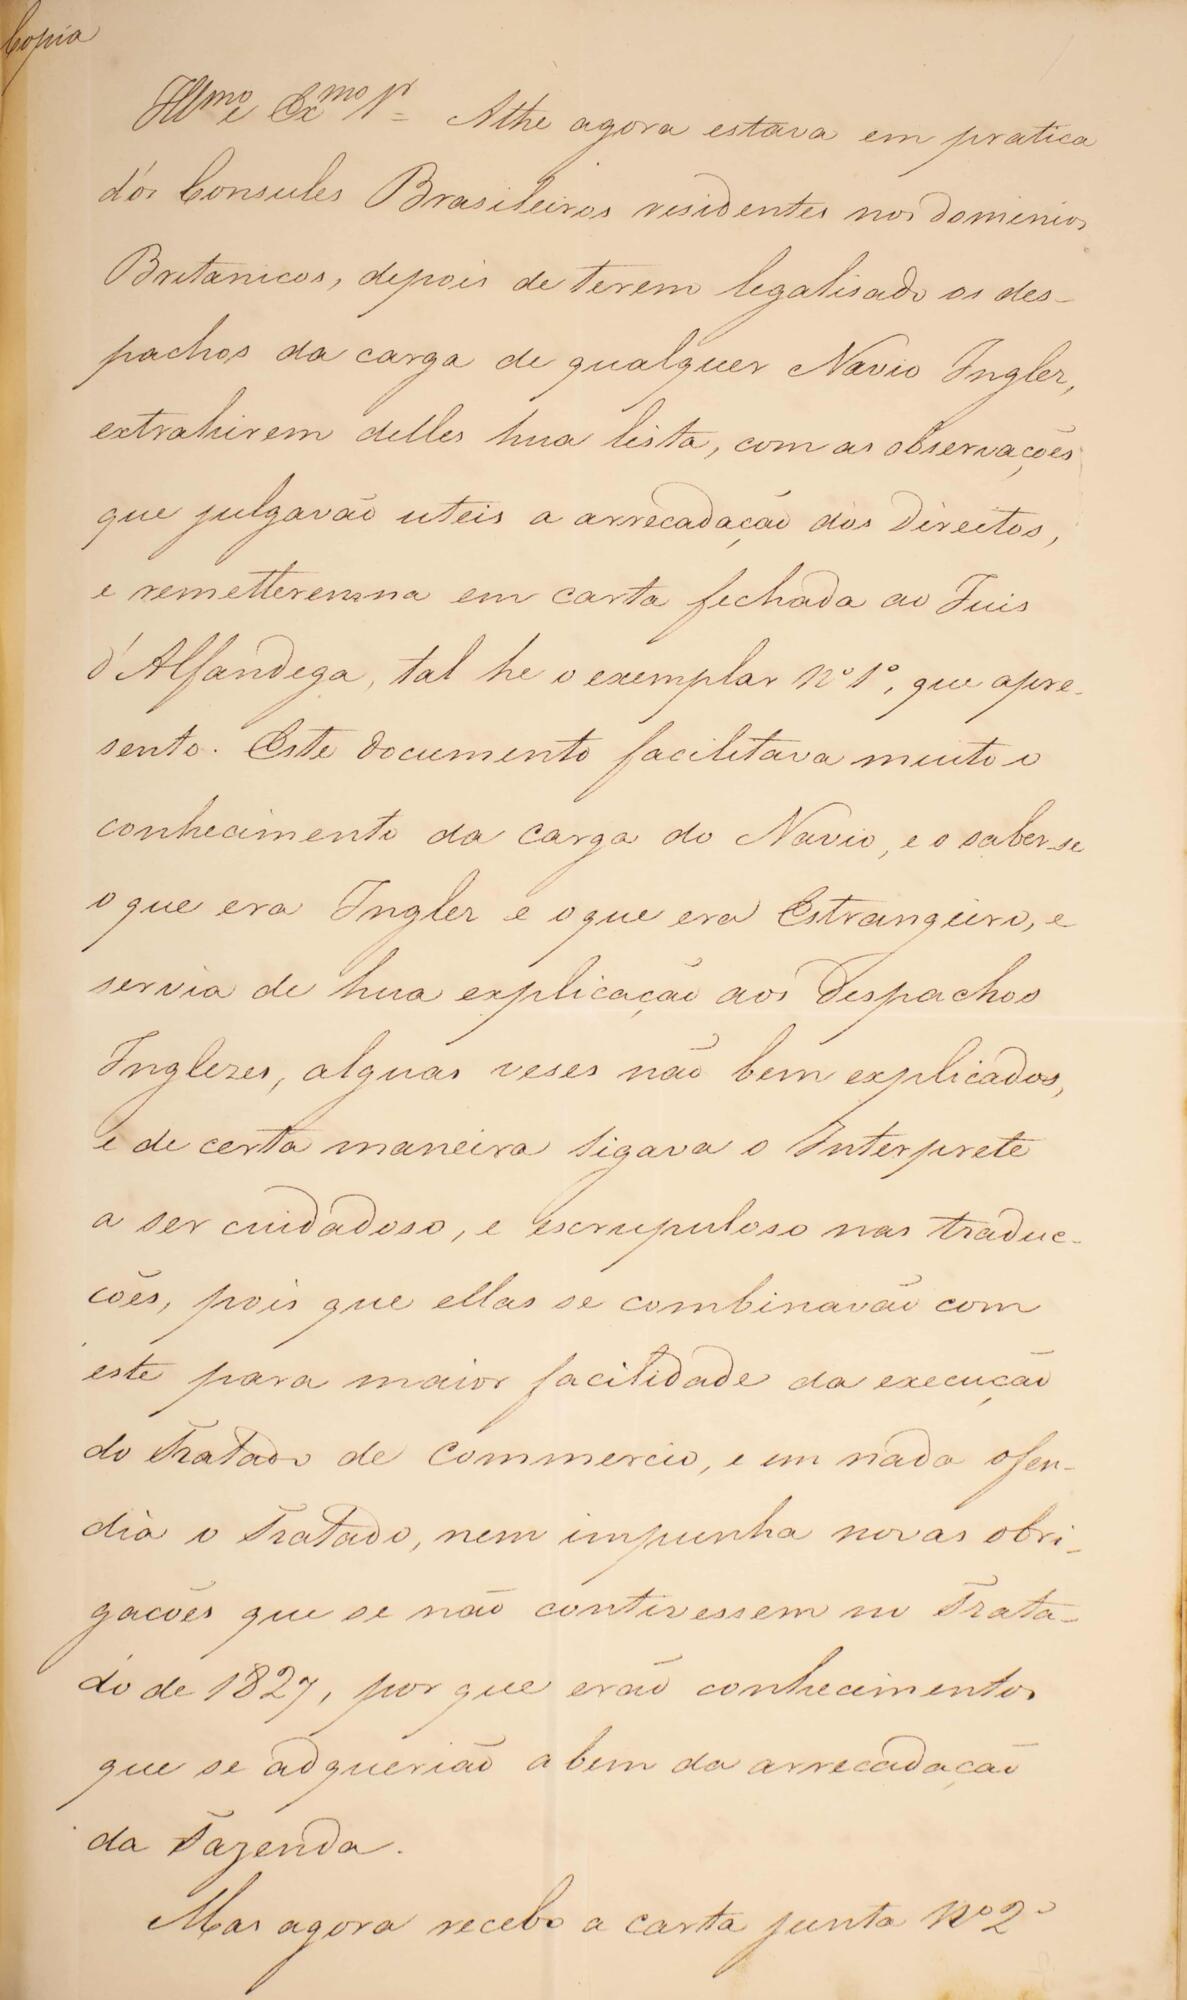 Copia
Illmo e Exmo Sr = Athe agora estava em pratica
dos Consules Brasileiros residentes nos dominios
Britanicos, depois de terem legalisado os des-
pachos da carga de qualquer Navio Inglez,
extrahirem delles hua lista, com as observações
que julgavão uteis a arrecadação dos Direitos,
e remetteremna em carta fechada ao Juis
d'Alfandega, tal he o exemplar Nº 1º, que apre-
sento. Este documento facilitava muito o
conhecimento da carga do Navio, e o saber-se
o que era Inglez e o que era Estrangeiro, e
servia de hua explicação aos Despachos
Inglezes, alguas veses não bem explicados,
e de certa maneira ligava o Interprete
a ser cuidadoso, e escrupuloso nas traduc-
cões, pois que ellas se combinavão com
este para maior facilidade da execução
do Tratado de Commercio, e em nada ofen-
dia o Tratado, nem impunha novas obri-
gacões que se não contivessem no Trata-
do de 1827, por que erão conhecimentos
que se adquerião a bem da arrecadação
da Fazenda.
Mas agora recebo a carta junta Nº 2º